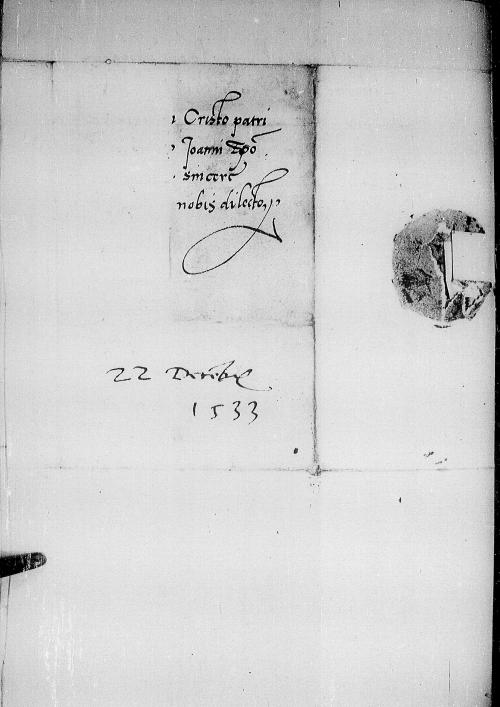 Cristo patri
Joanni Epõ
sincere
nobis dilecto
22 Decēbr
1533